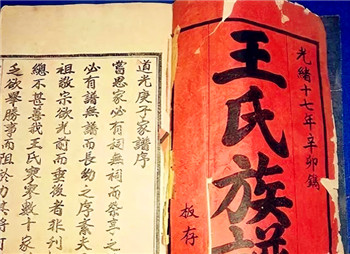 光緒十七年辛卯鐫
王氏族譜
板存
道光庚子家譜序
嘗思家必有祠無祠而祭享之
必有譜無譜而長幼之序紊夫
祖敬宗欲光前而垂後者非刊
總不甚善我王氏寥寥數十家
乏欲舉勝事而阻於力其